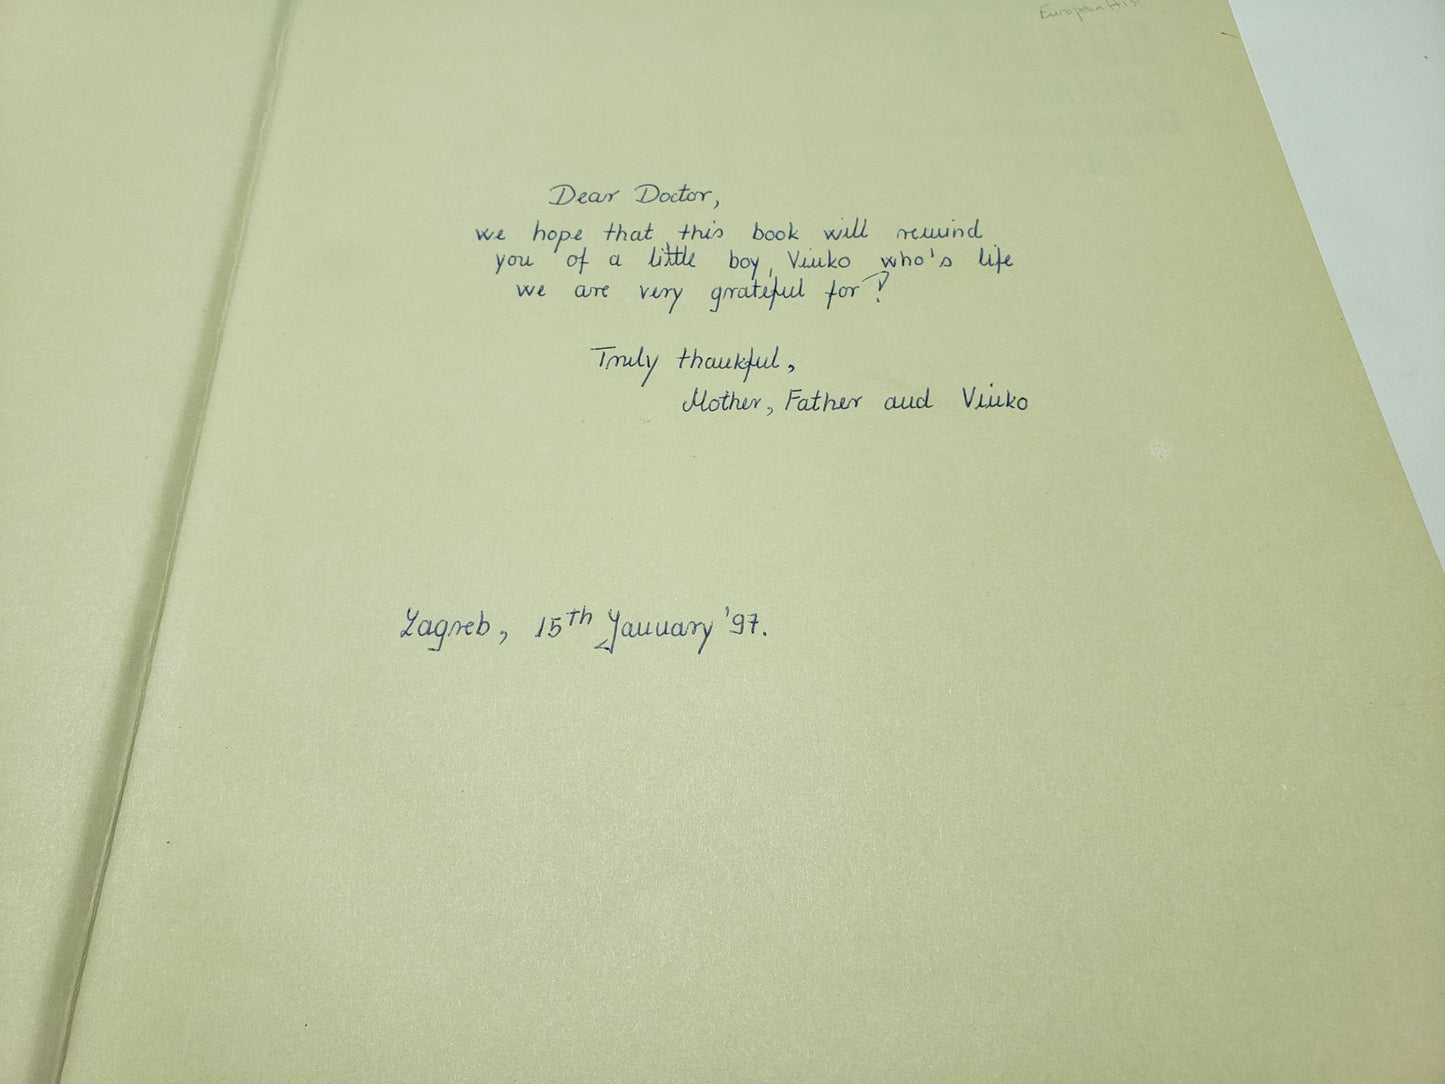 European His
Dear Doctor,
we hope that this book will remind
you of a little boy, Vinko who's life
we are very grateful for!
Truly thankful,
Mother, Father and Vinko
Zagreb, 15th January '97.